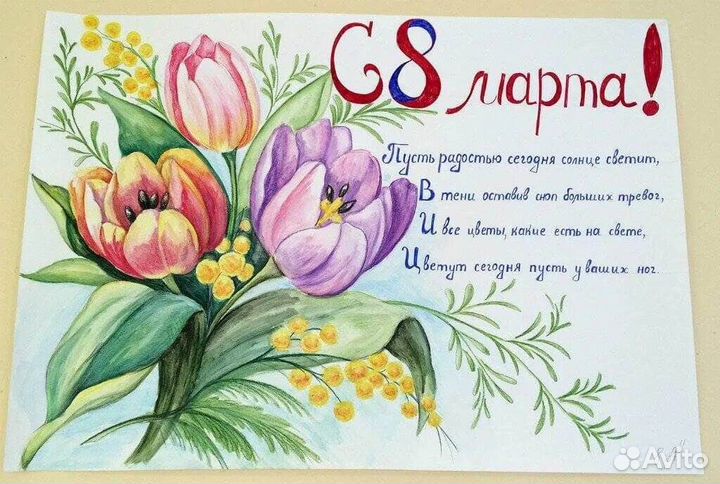 С 8 марта!
Пусть радостью сегодня солнце светит,
В тени оставив сноп больших тревог,
И все цветы, какие есть на свете,
Цветут сегодня пусть у ваших ног.
Avito